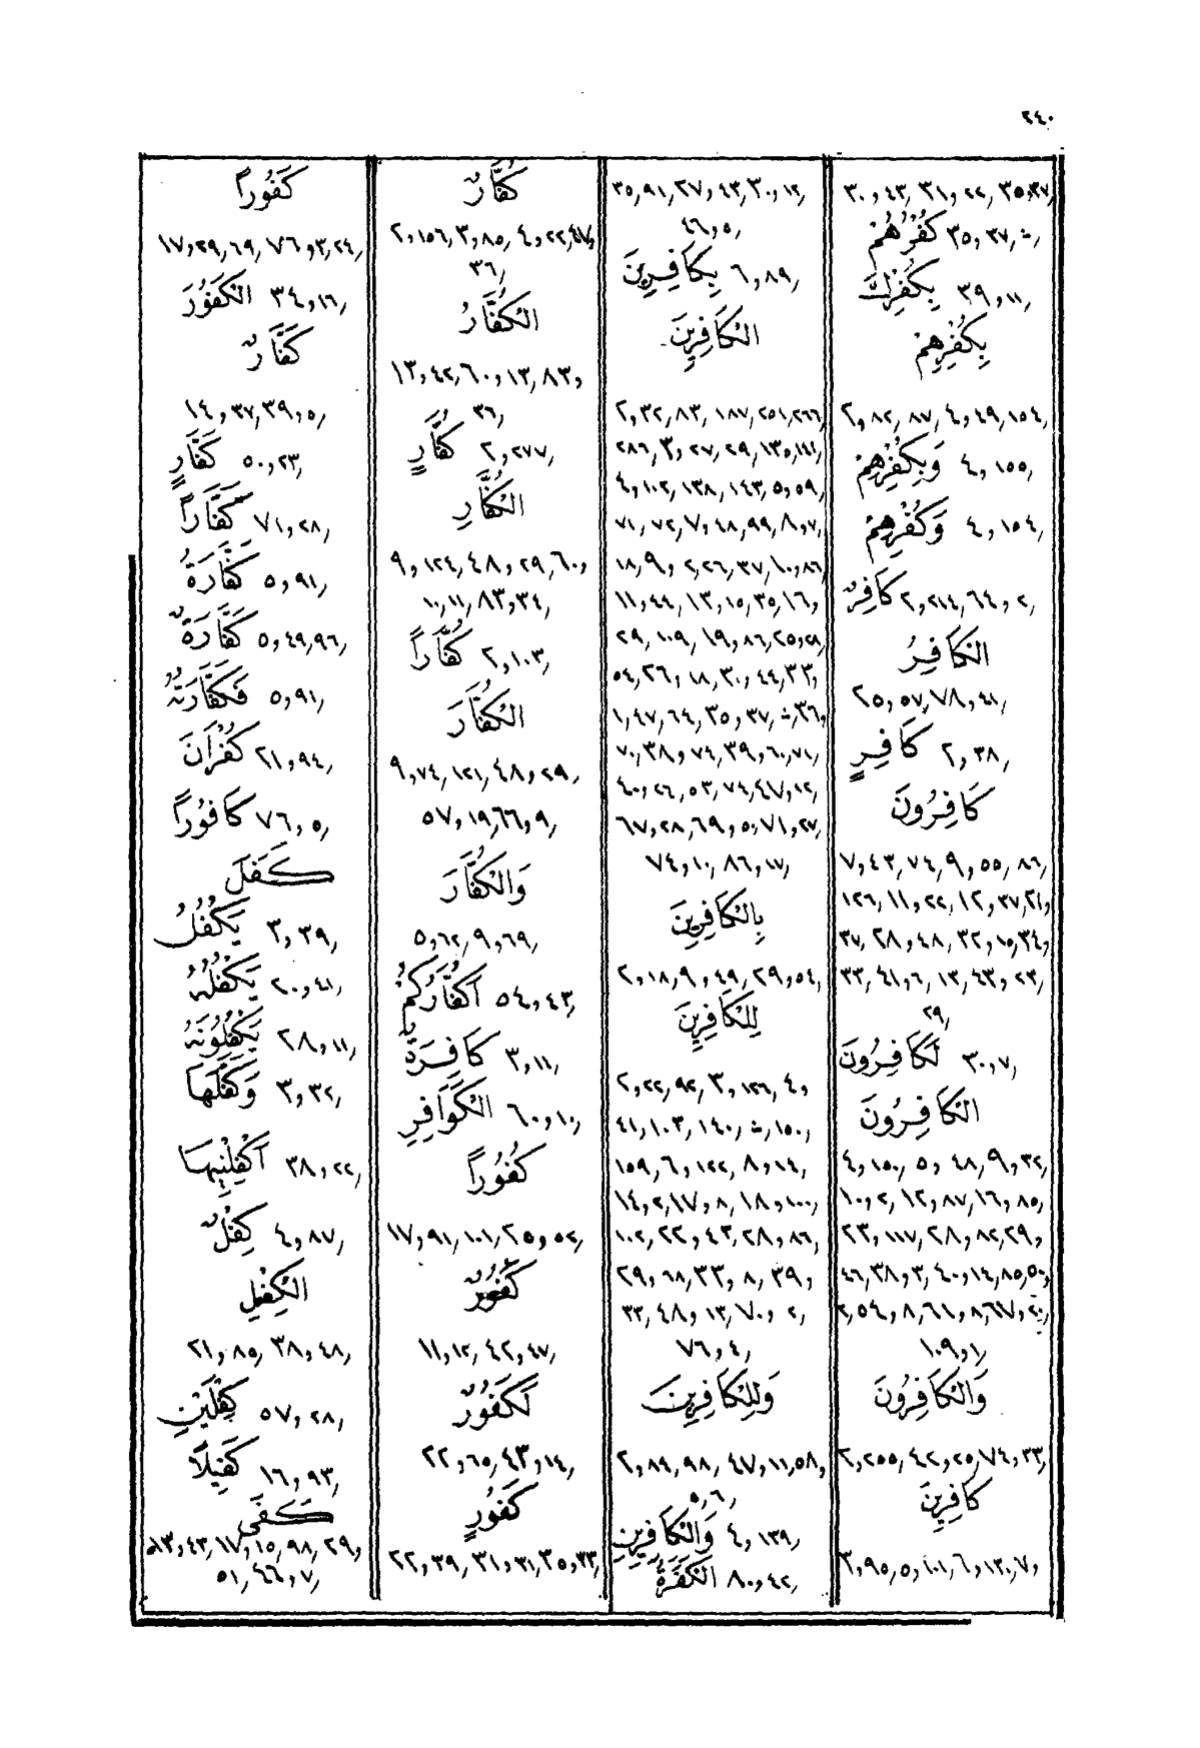 ٢٤٠
٣٠,٤٣, ٣١,٢٢, ٣٥,٣٧,
كُفْرُهُمْ ٣٥,٣٧,
بِكُفْرِكَ ٣٩,١١,
بِكُفْرِهِمْ
٢,٨٢, ٨٧, ٤,٤٩, ١٥٤,
وَبِكُفْرِهِمْ ٤,١٥٥,
وَكُفْرِهِمْ ٤,١٥٤,
كَافِرٌ ٢,٢١٤, ٦٤,٢,
الْكَافِرُ
٢٥,٥٧, ٧٨,٤١,
كَافِرٍ ٢,٣٨,
كَافِرُونَ
٧,٤٣, ٧٤, ٩,٥٥, ٨٦,
١٢٦, ١١,٢٢, ١٢,٣٧, ٢١,
٣٧, ٢٨,٤٨, ٣٢,١٥, ٣٤,
٣٣, ٤١,٦, ١٣, ٤٣,٢٣,
٢٩,
لَكَافِرُونَ ٣٠,٧,
الْكَافِرُونَ
٤,١٥٠, ٥,٤٨, ٩,٣٢,
١٠,٢, ١٢,٨٧, ١٦,٨٥,
٢٣, ١١٧, ٢٨,٨٢, ٢٩,
٤٦, ٣٨,٣, ٤٠,١٤, ٨٥, ٥٠,
٢,٥٤, ٨,٦١, ٨, ٦٧, ٢٠,
١٠٩,١,
وَالْكَافِرُونَ
٢,٢٥٥, ٤٢,٢٥, ٧٤,٣٣,
كَافِرِينَ
٣,٩٥, ٥,١٠١, ٦,١٣٠, ٧,
٣٥,٩١, ٢٧,٤٣, ٣٠,١٢,
٤٦,٥,
بِكَافِرِينَ ٦,٨٩,
الْكَافِرِينَ
٢,٣٢, ٨٣, ١٨٧, ٢٥١, ٢٦٦,
٢٨٦, ٣,٢٧, ٢٩, ١٣٥, ١٤١,
٤,١٠٢, ١٣٨, ١٤٣, ٥,٥٩,
٧١, ٧٢, ٧,٤٨, ٩٩, ٨,٧,
١٨, ٩,٢, ٢٦, ٣٧, ١٠,٨٦,
١١,٤٤, ١٣,١٥, ٣٥, ١٦,
٢٩, ١٠٩, ١٩,٨٦, ٢٥,٢٨,
٥٤, ٢٦,١٨, ٣٠,٤٤, ٣٣,
١,٤٧, ٦٤, ٣٥,٣٧, ٣٦,
٧٠, ٣٨,٧٤, ٣٩,٦٠, ٧١,
٤٠,٢٦, ٥٣, ٧٤, ٤٧,١٢,
٦٧,٢٨, ٦٩,٥, ٧١,٢٧,
٧٤,١٠, ٨٦,١٧,
بِالْكَافِرِينَ
٢,١٨, ٩,٤٩, ٢٩,٥٤,
لِلْكَافِرِينَ
٢,٢٢, ٩٢, ٣,١٢٦, ٤,
٤١, ١٠٣, ١٤٠, ١٥٠,
١٥٩, ٦,١٢٢, ٨,١٤,
١٤,٢, ١٧,٨, ١٨,١٠٠,
١٠٢, ٢٢,٤٣, ٢٨,٨٦,
٢٩,٦٨, ٣٣,٨, ٣٩,
٣٣, ٤٨,١٣, ٧٠,٢,
٧٦,٤,
وَلِلْكَافِرِينَ
٢,٨٩, ٩٨, ٤٧,١١, ٥٨,
٥, ٦,
وَالْكَافِرِينَ ٤,١٣٩,
الْكَفَرَةُ ٨٠,٤٢,
كُفَّارٌ
٢,١٥٦, ٣,٨٥, ٤,٢٢, ٤٧,
٣٦,
الْكُفَّارُ
١٣,٤٢, ٦٠,١٣, ٨٣,
٣٦,
كُفَّارٍ ٢,٢٧٧,
الْكُفَّارِ
٩,١٢٤, ٤٨,٢٩, ٦٠,
١٠,١١, ٨٣,٣٤,
كُفَّاراً ٢,١٠٣,
الْكُفَّارَ
٩,٧٤, ١٢١, ٤٨,٢٩,
٥٧,١٩, ٦٦,٩,
وَالْكُفَّارَ
٥,٦٢, ٩,٦٩,
أَكُفَّارُكُمْ ٥٤,٤٣,
كَافِرَةٌ ٣,١١,
الْكَوَافِرِ ٦٠,١٠,
كُفُوراً
١٧,٩١, ١٠١, ٢٥,٥٢,
كَفُورٌ
١١,١٢, ٤٢,٤٧,
لَكَفُورٌ
٢٢,٦٥, ٤٣,١٤,
كَفُورٍ
٢٢,٣٩, ٣١,٣١, ٣٥,٣٣,
كَفُوراً
١٧,٢٩, ٦٩, ٧٦,٣, ٢٤,
الْكَفُورَ ٣٤,١٦,
كَفَّارٌ
١٤,٣٧, ٣٩,٥,
كَفَّارٍ ٥٠,٢٣,
كَفَّاراً ٧١,٢٨,
كَفَّارَةُ ٥,٩١,
كَفَّارَةٌ ٥,٤٩, ٩٦,
فَكَفَّارَتُهُ ٥,٩١,
كُفْرَانَ ٢١,٩٤,
كَافُوراً ٧٦,٥,
كَفَلَ
يَكْفُلُ ٣,٣٩,
يَكْفُلُهُ ٢٠,٤١,
يَكْفُلُونَهُ ٢٨,١١,
وَكَفَّلَهَا ٣,٣٢,
أَكْفِلْنِيهَا ٣٨,٢٢,
كِفْلٌ ٤,٨٧,
الْكِفْلِ
٢١,٨٥, ٣٨,٤٨,
كِفْلَيْنِ ٥٧,٢٨,
كَفِيلاً ١٦,٩٣,
كَفَى
١٣,٤٣, ١٧,١٥, ٩٨, ٢٩,
٥١, ٤٦,٧,